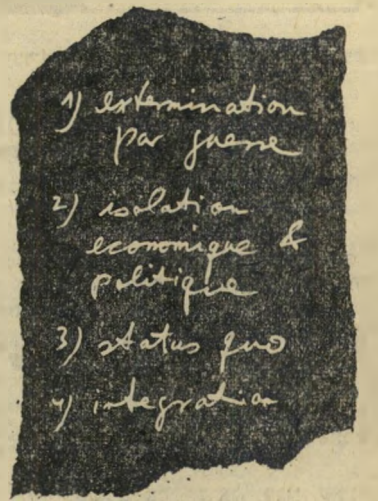 1) extermination
par guerre
2) isolation
economique &
politique
3) status quo
4) integration